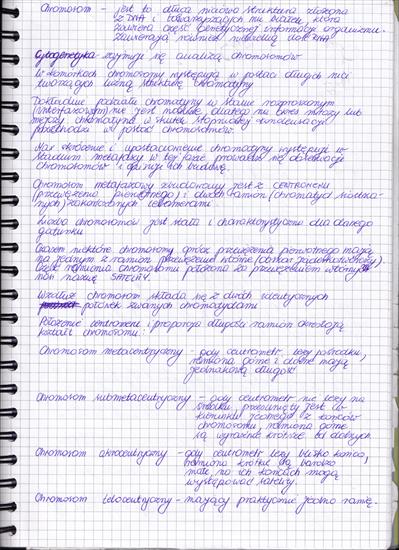 Chromosom - jest to długa niciowa struktura złożona
z DNA i towarzyszących mu białek, która
zawiera część genetycznej informacji organizmu.
zawierają również niewielką ilość RNA
Cytogenetyka - zajmuje się analizą chromosomów
W komórkach chromosomy występują w postaci długich nici
tworzących luźną strukturę chromatyny
Dokładnie podziału chromatyny w stanie rozproszonym
(interfazowym) nie jest możliwe, dlatego na okres mitozy lub
mejozy chromatyna w skutek stopniowej kondensacji
przechodzi w postać chromosomów.
Max skrócenie i upostaciowienie chromatyny występuje w
stadium metafazy w tej fazie prowadzi się obserwacje
chromosomów i opisuje ich budowę.
Chromosom metafazowy zbudowany jest z centromeru
(przewężenia pierwotnego) i dwóch ramion (chromatyd siostrza-
nych) zakończonych telomerami
Liczba chromosomów jest stała i charakterystyczna dla danego
gatunku
Czasem niektóre chromosomy oprócz przewężenia pierwotnego mają
na jednym z ramion przewężenie wtórne (obszar jąderkotwórczy).
Część ramienia chromosomu położona za przewężeniem wtórnym
nosi nazwę SATELITY.
Wzdłuż chromosom składa się z dwóch identycznych
połówek zwanych chromatydami
Położenie centromeru i proporcja długości ramion określają
kształt chromosomu:
Chromosom metacentryczny - gdy centromer leży pośrodku,
ramiona górne i dolne mają
jednakową długość
Chromosom submetacentryczny - gdy centromer nie leży na
środku, przesunięty jest do
kierunku jednego z końców
chromosomu, ramiona górne
są wyraźnie krótsze od dolnych
Chromosom akrocentryczny - gdy centromer leży blisko końca,
ramiona krótkie są bardzo
małe, na ich końcach mogą
występować satelity
Chromosom telocentryczny - mający praktycznie jedno ramię.